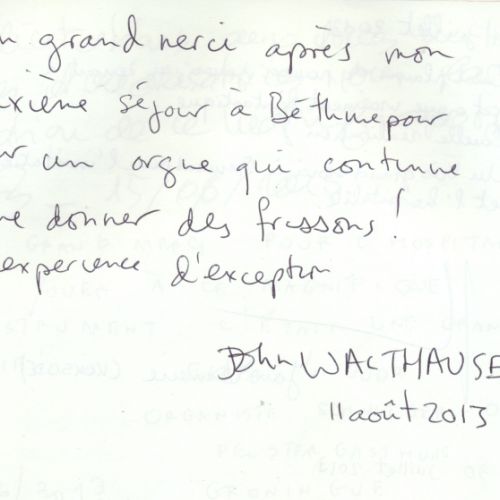 n grand merci après mon
uxième séjour à Béthune pour
r un orgue qui continue
e donner des frissons!
expérience d'exception
John WALTHAUSE
11 août 2013